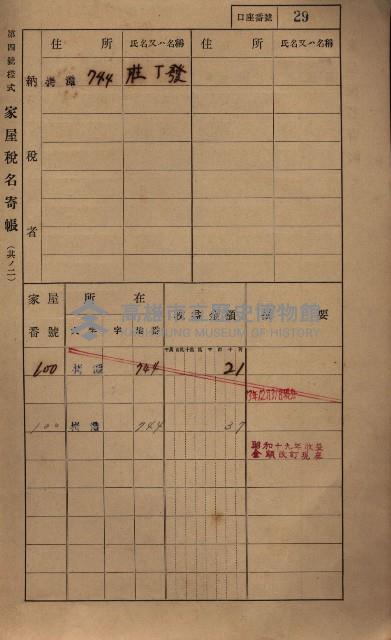 口座番號 29
第四號樣式 家屋稅名寄帳(其ノ二)
住所 氏名又ハ名稱 住所 氏名又ハ名稱
納稅者
744 莊丁發
家屋番號 所在 收益金額 摘要
大字 字 地番
100 744 21
17年12月31日現在
100 744 37
昭和十九年收益
金額改訂現在
高雄市立歷史博物館
KAOHSIUNG MUSEUM OF HISTORY